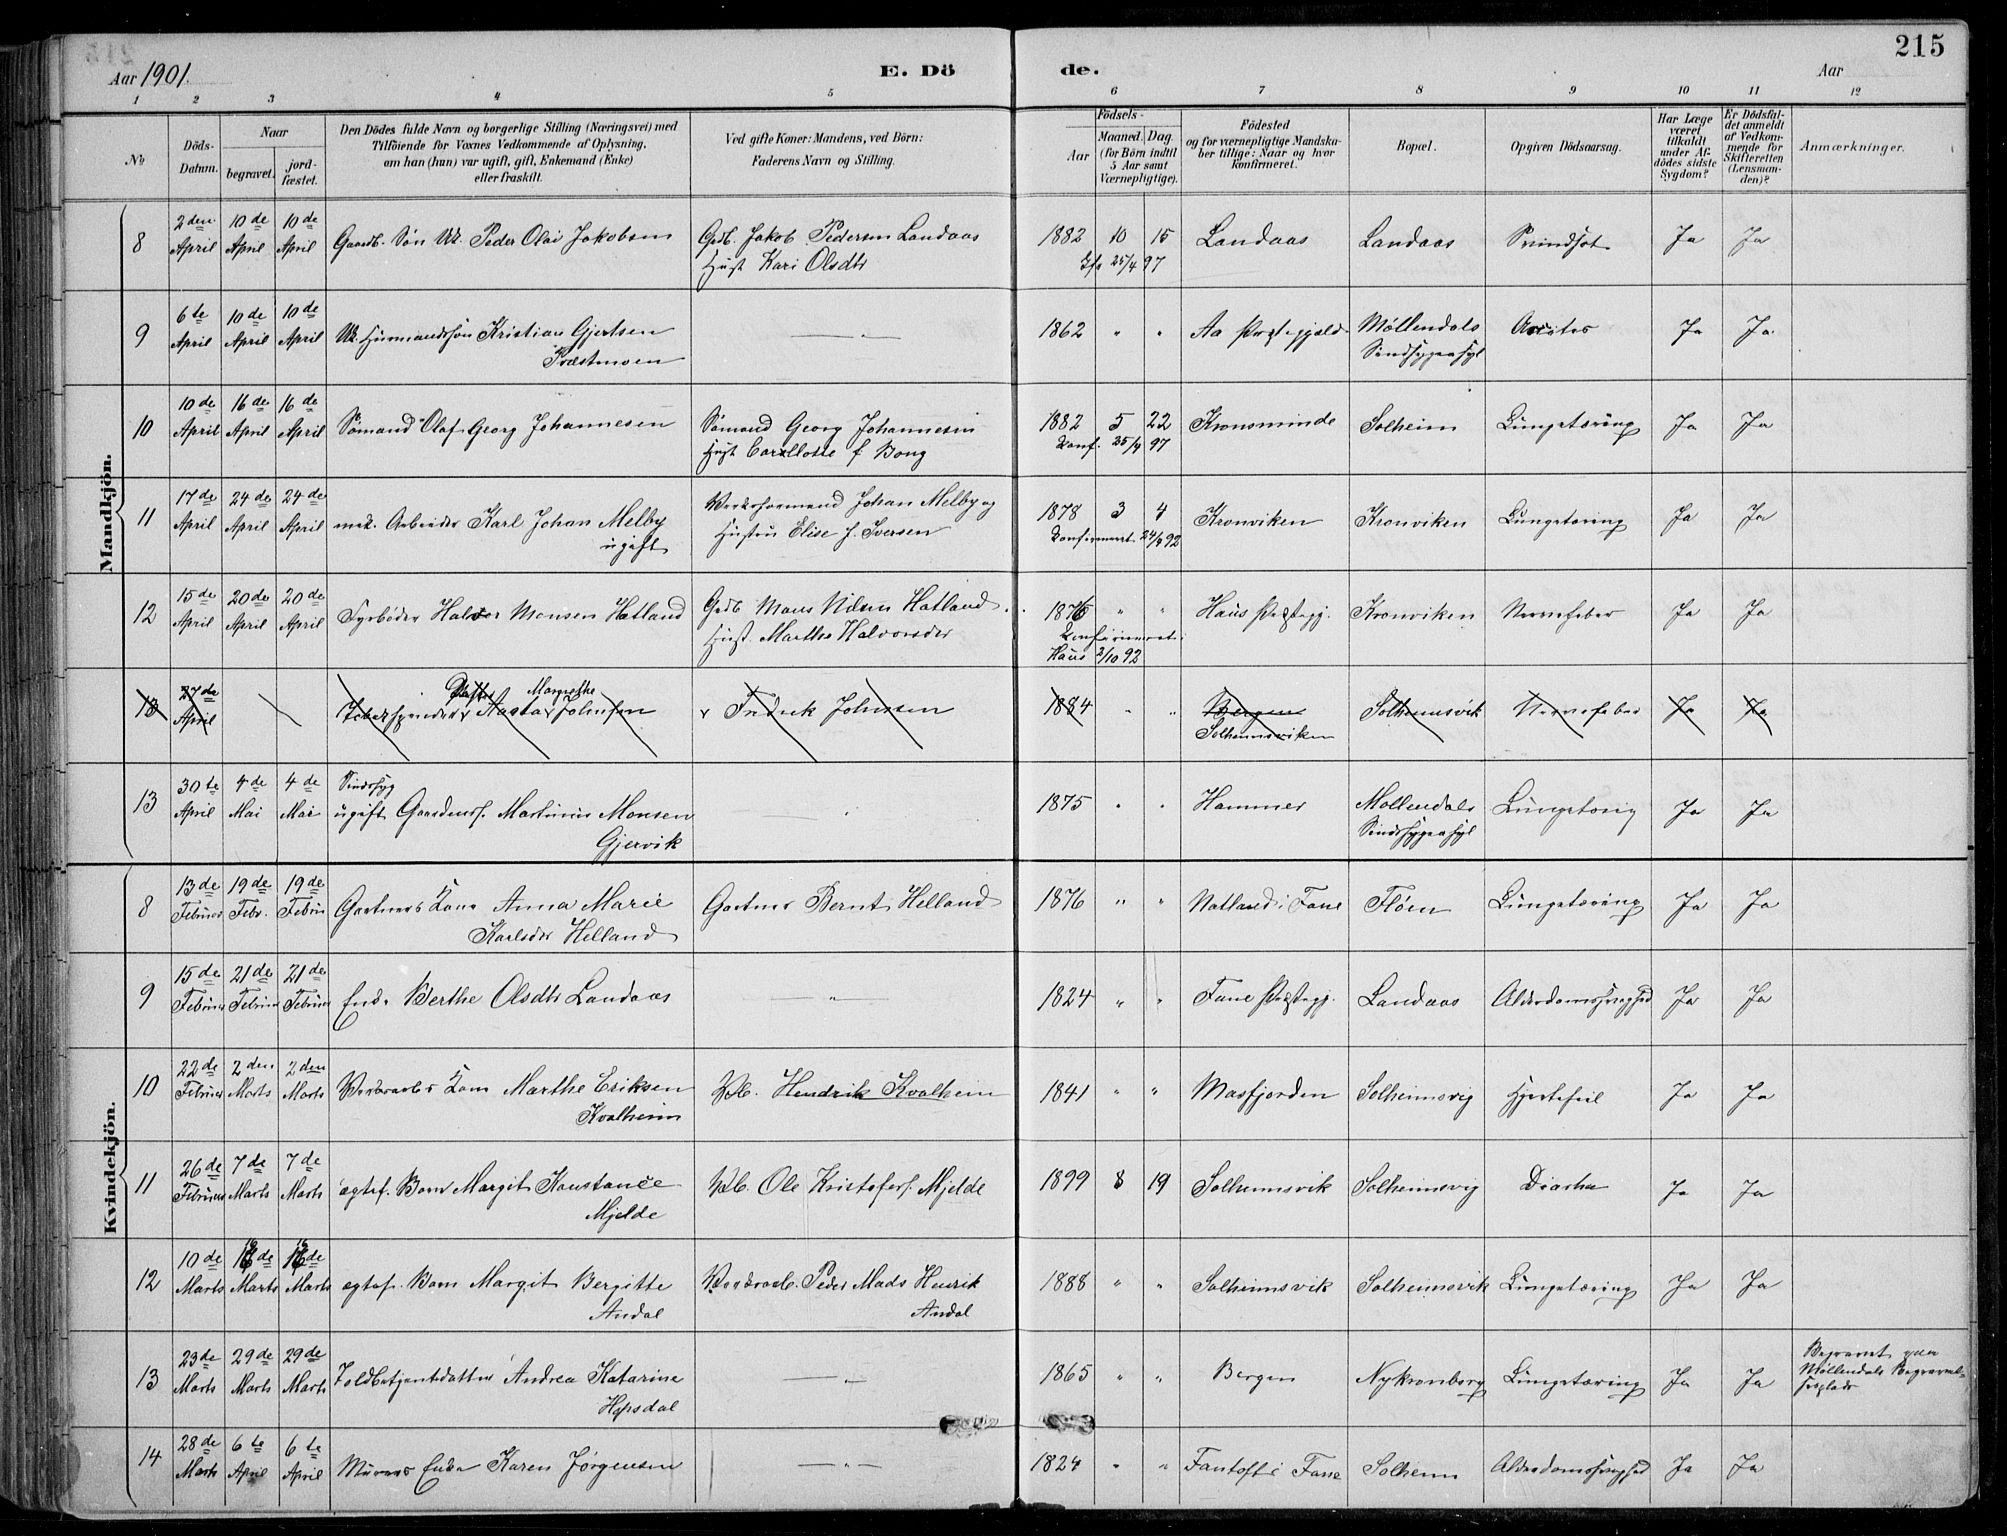 215
Aar 1901. E. Dö de. Aar
1 2 3 4 5 6 7 8 9 10 11 12
No
Döds-Datum.
Naar
begravet.
jord-fæstet.
Den Dödes fulde Navn og borgerlige Stilling (Næringsvei) med
Tilföiende for Voxnes Vedkommende af Oplysning,
om han (hun) var ugift, gift, Enkemand (Enke)
eller fraskilt.
Ved gifte Koner: Mandens, ved Börn:
Faderens Navn og Stilling.
Födsels-
Aar
Maaned. Dag.
(for Börn indtil
5 Aar samt
Værnepligtige).
Födested
og for værnepligtige Mandska-
ber tillige: Naar og hvor
konfirmeret.
Bopæl.
Opgiven Dödsaarsag.
Har Læge
været
tilkaldt
under Af-
dödes sidste
Sygdom?
Er Dödsfal-
det anmeldt
af Vedkom-
mende for
Skifteretten
(Lensman-
den)?
Anmærkninger.
Mandkjön.
8 2den April 10de April 10de April Gaardb. Søn Uk. Peder Olai Jakobsen Grdb. Jakob Pedersen Landaas 1882 10 15 Landaas Landaas Svindsot Ja Ja
Hust Kari Olsdtr 25/4 97
9 6te April 10de April 10de April Uk. Husmandssøn Kristian Gjertsen — " — 1862 " " Aa Præstegjæld Møllendals Ja Ja
Præstmoen Sindsygeasyl
10 10de April 16de April 16de April Sømand Olaf Georg Johannesen Sømand Georg Johannesen 1882 5 22 Kronsminde Solheim Lungetæring Ja Ja
Hust f Bong Konf. 25/4 97
11 17de April 24de April 24de April mek. Arbeider Karl Johan Melby Værksformand Johan Melby og 1878 3 4 Kronviken Kronviken Lungetæring Ja Ja
ugift Hustru Elise f. Iversen Konfirmeret 24/4 92
12 15de April 20de April 20de April Fyrbøder Halvor Monsen Hatland Grdb Mons Nilsen Hatland 1876 " " Haus Præstegj. Kronviken Nervefeber Ja Ja
Hust. Marthe Halvorsdtr Konfirmeret
Haus 2/10 92
13 27de April Datter Margrethe
Johnsen Fredrik Johnsen 1884 " " Bergen Solheimsvik Nervefeber Ja Ja
Solheimsviken
13 30te April 4de Mai 4de Mai Sindssyg
ugift Gaardmss. Martinus Monsen 1875 " " Hammer Møllendals Lungetæring Ja Ja
Gjervik Sindssygeasyl
Kvindekjön.
8 13de Februar 19de Febr. 19de Februar Gartners Kone Anna Marie Gartner Bernt Helland 1876 " " Natland i Fane Fløen Lungetæring Ja Ja
Karlsdtr Helland
9 15de Februar 21de Februar 21de Februar Enke Berthe Olsdtr Landaas " 1824 " " Fane Præstegj. Landaas Alderdomssvaghed Ja Ja
10 22de Februar 2den Marts 2den Marts Kone Marthe Eriksen Hendrik Kvalheim 1841 " " Masfjorden Solheimsvig Hjertefeil Ja Ja
Kvalheim
11 26de Februar 7de Marts 7de Marts ægtef. Barn Margit Konstance Ole Kristofers. Mjelde 1899 8 19 Solheimsvik Solheimsvig Ja Ja
Mjelde
12 10de Marts 16de Marts 16de Marts ægtef. Barn Margit Bergitte Peder Mads Henrik 1888 " " Solheimsvik Solheimsvik Lungetæring Ja Ja
Andal Andal
13 23de Marts 29de Marts 29de Marts Toldbetjentdatter Andrea Katarine — " — 1865 " " Bergen Nykronborg Lungetæring Ja Ja Begravet paa
Møllendals Begravel-
sesplads
Hopsdal
14 28de Marts 6te April 6te April Murers Enke Karen Jørgensen — " — 1824 " " Fantoft i Fane Solheim Alderdomssvaghed Ja Ja